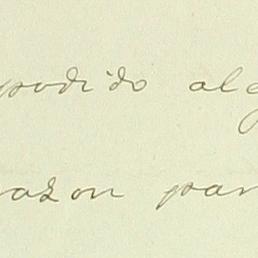 podido alg
razon par